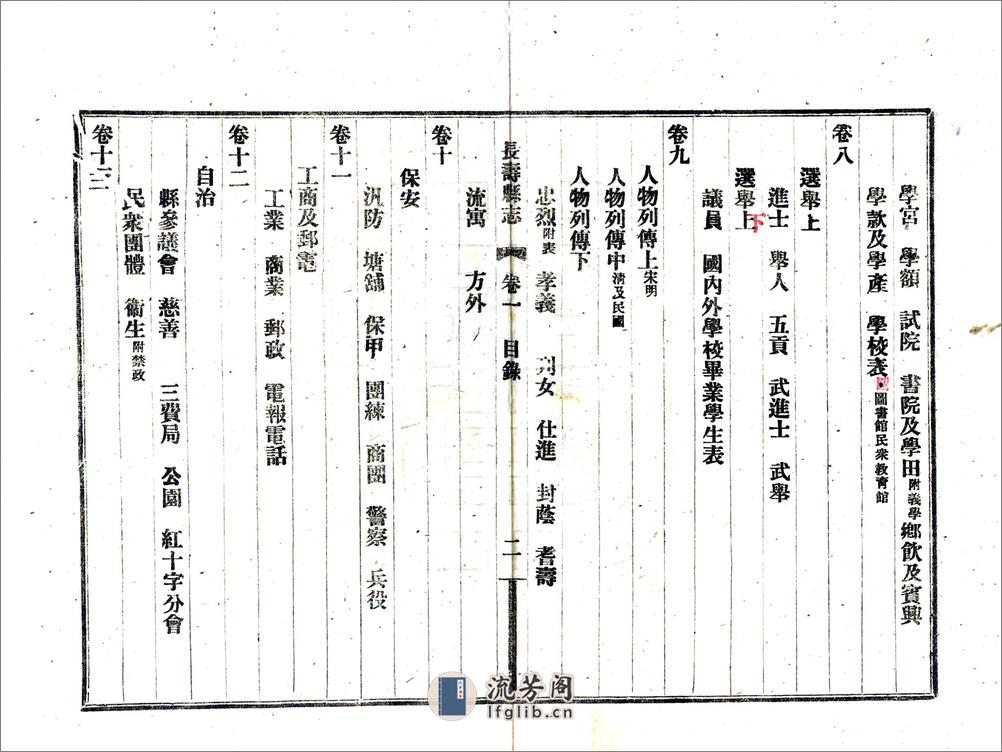 學宮 學額 試院 書院及學田附義學 鄉飲及賓興
學款及學產 學校表附圖書館民衆教育館
卷八
選舉上
進士 舉人 五貢 武進士 武舉
選舉上下
議員 國內外學校畢業學生表
卷九
人物列傳上宋明
人物列傳中清及民國
人物列傳下
忠烈附表 孝義 列女 仕進 封蔭 耆壽
長壽縣志 卷一 目錄 二
流寓 方外
卷十
保安
汛防 塘舖 保甲 團練 商團 警察 兵役
卷十一
工商及郵電
工業 商業 郵政 電報電話
卷十二
自治
縣參議會 慈善 三費局 公園 紅十字分會
民衆團體 衞生附禁政
卷十三
流芳阁
lfglib.cn